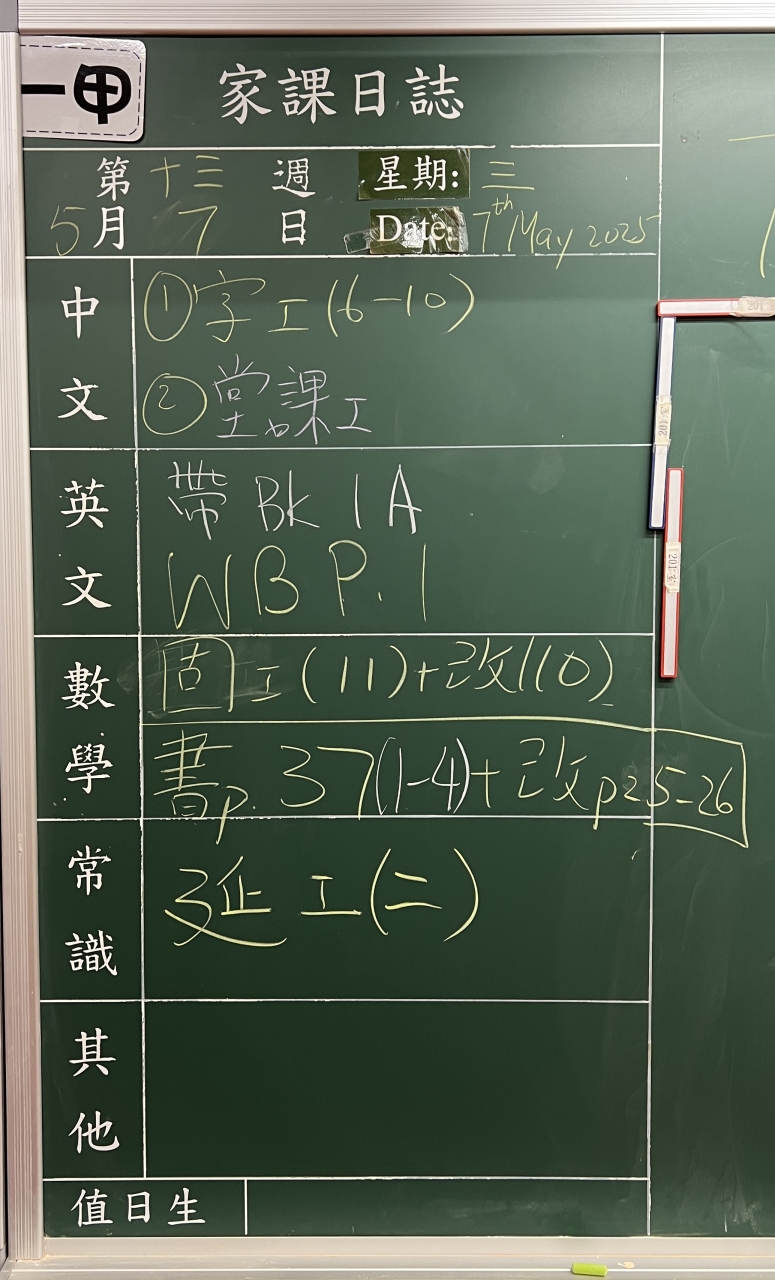 一甲 家課日誌
第 十三 週 星期: 三
5月 7 日 Date: 7th May 2025
中文
①字工(6-10)
②堂課工
英文
帶 Bk 1A
WB P.1
數學
固工(11)+改(10)
書p. 37(1-4)+改p25-26
常識
延工(二)
其他
值日生